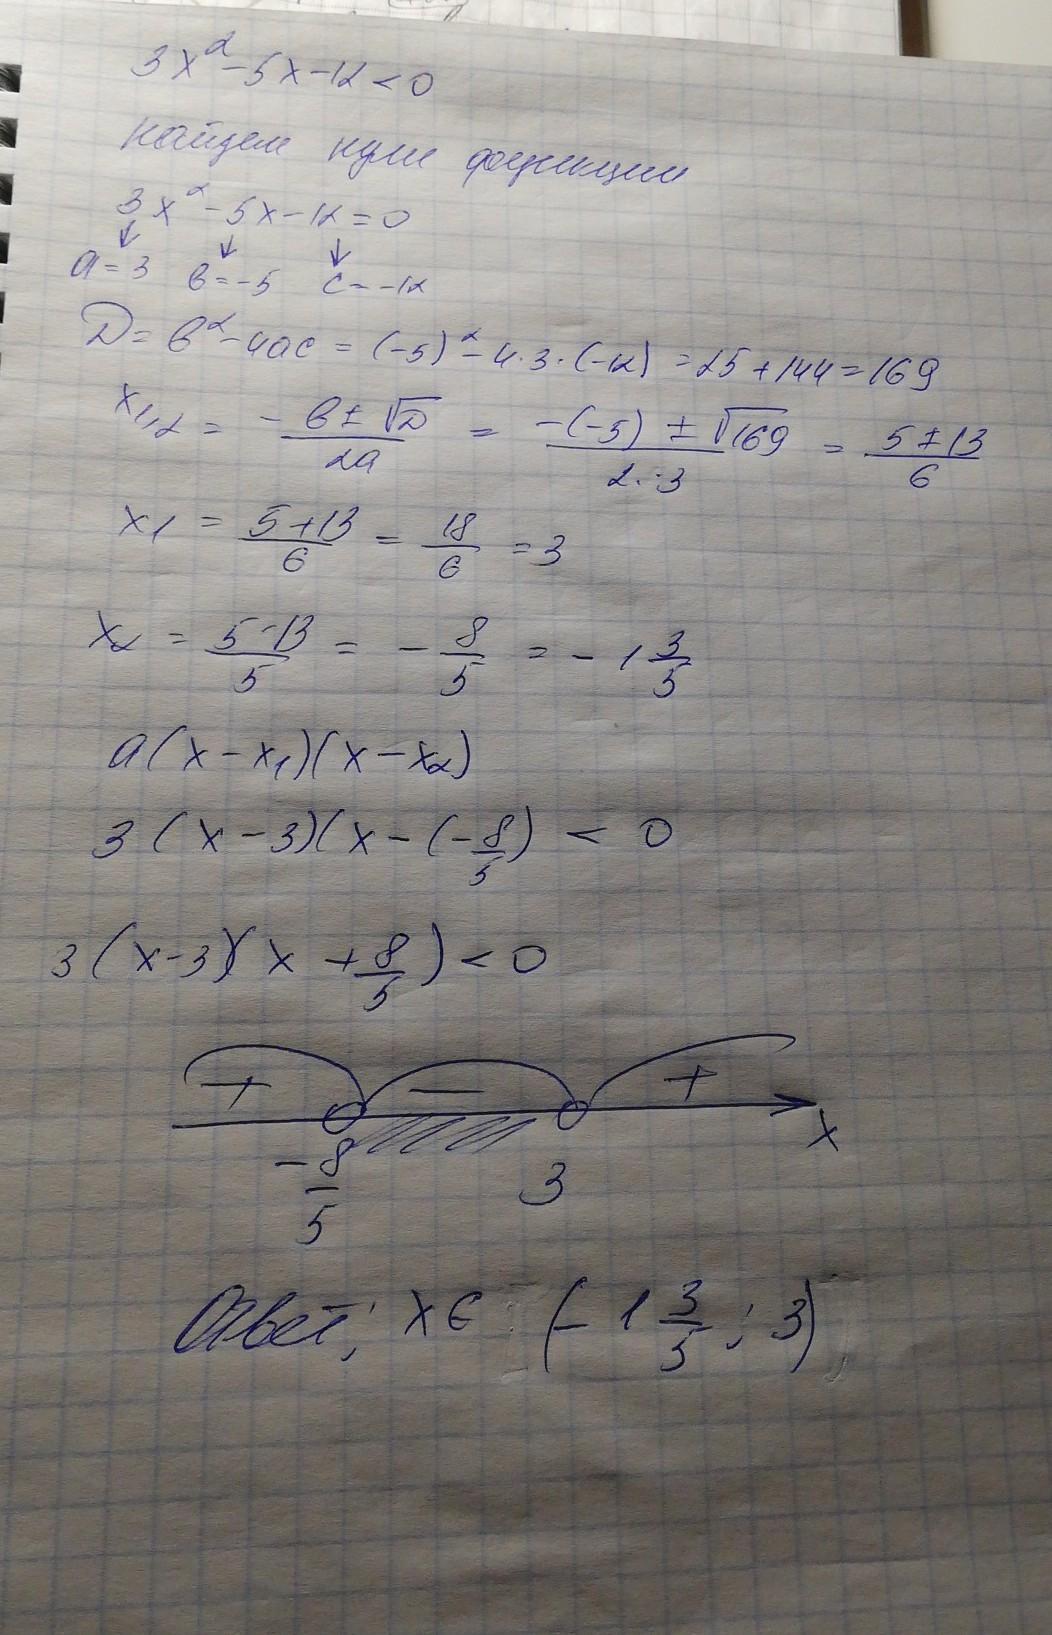 3x² - 5x - 12 < 0
найдем нули функции
3x² - 5x - 12 = 0
a = 3 в = -5 с = -12
D = в² - 4ac = (-5)² - 4·3·(-12) = 25 + 144 = 169
x1,2 = -в ± √D / 2a = -(-5) ± √169 / 2·3 = 5 ± 13 / 6
x1 = 5+13 / 6 = 18/6 = 3
x2 = 5-13 / 5 = - 8/5 = - 1 3/5
a(x - x1)(x - x2)
3(x - 3)(x - (-8/5) < 0
3(x-3)(x + 8/5) < 0
+ — +
-8/5 3 x
Ответ; x ∈ (- 1 3/5 ; 3)